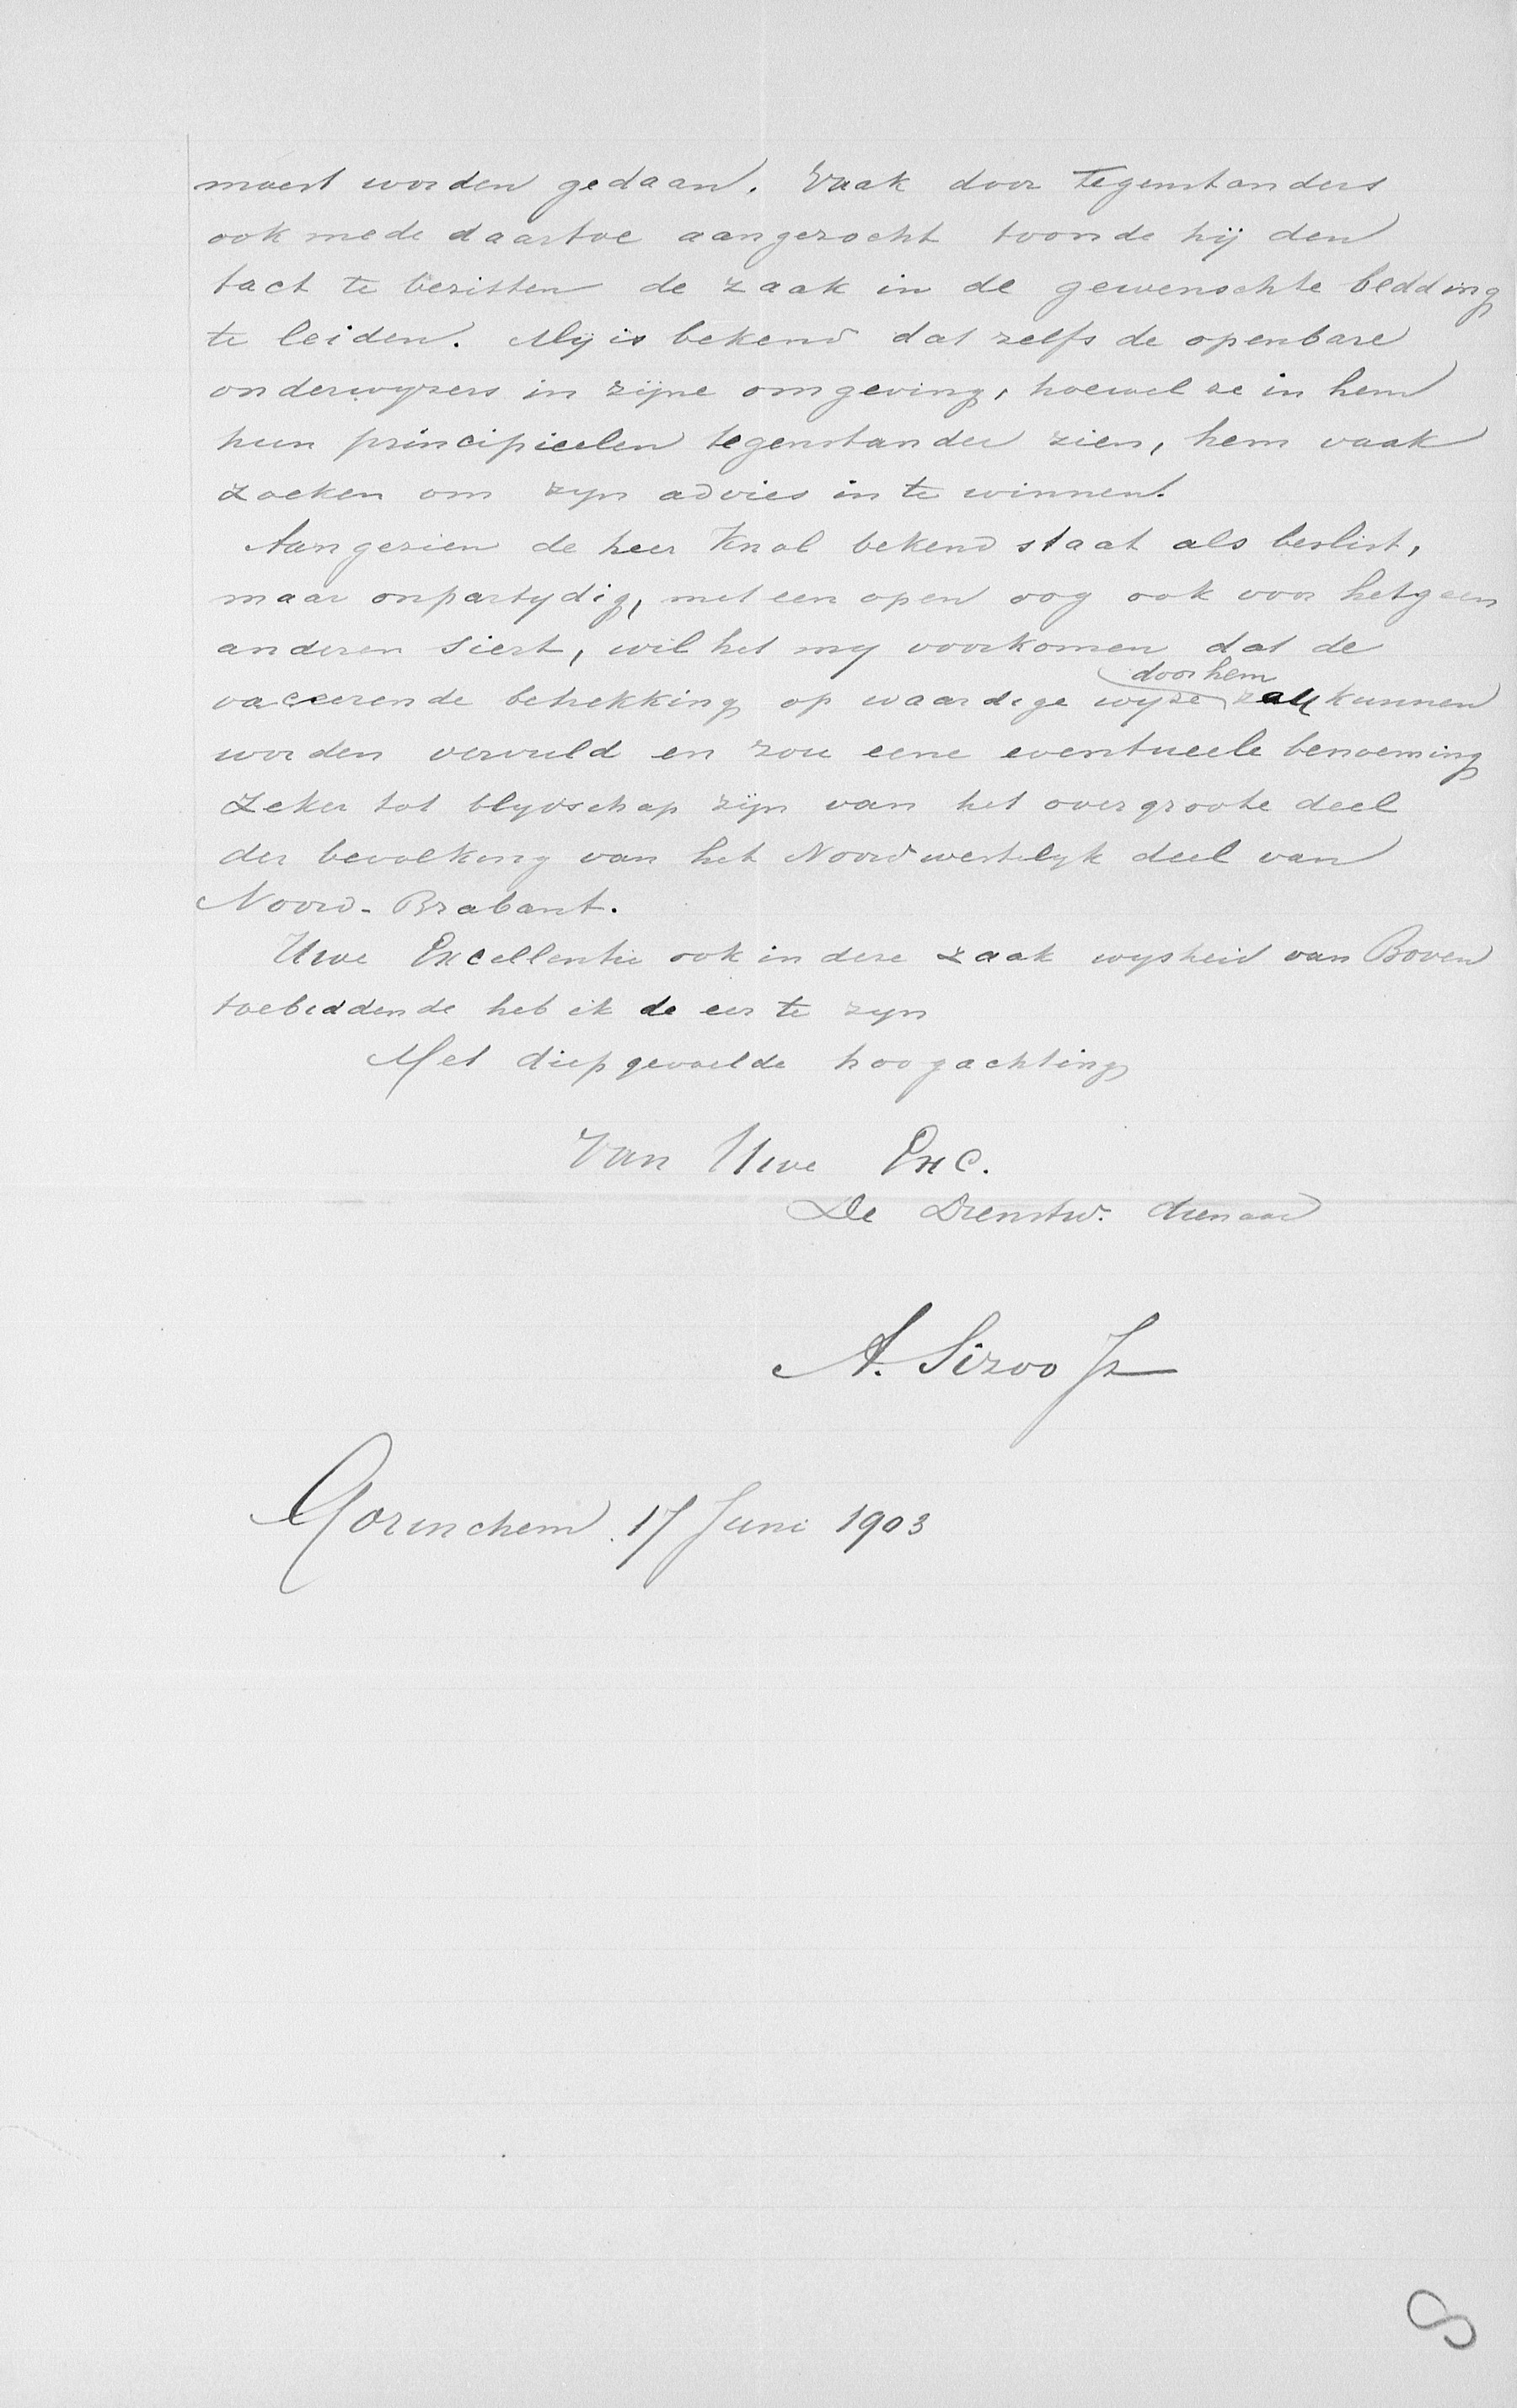 moest worden gedaan. Vaak door tegenstanders
ook mede daartoe aangezocht toonde hij den
tact te bezitten de zaak in de gewenschte bedding
te leiden. Mij is bekend dat zelfs de openbare
onderwyzers in zijne omgeving, hoewel ze in hem
hun principieelen tegenstander zien, hem vaak
zoeken om zyn advies in te winnen.
Aangezien de heer Knol bekend staat als beslist,
maar onpartydig, met een open oog ook voor hetgeen
anderen siert, wil het my voorkomen dat de
door hem
vaceerende betrekking op waardige wyze zal kunnen
worden vervuld en zou eene eventueele benoeming
zeker tot blydschap zijn van het overgroote deel
der bevolking van het Noordwestelyk deel van
Noord-Brabant.
Uwe Excellentie ook in deze zaak wysheid van Boven
toebiddende heb ik de eer te zyn
Met diepgevoelde hoogachting
Van Uwe Exc.
De Dienstw. dienaar
A. Sizoo Jz
Gorinchem. 17 Juni 1903
8